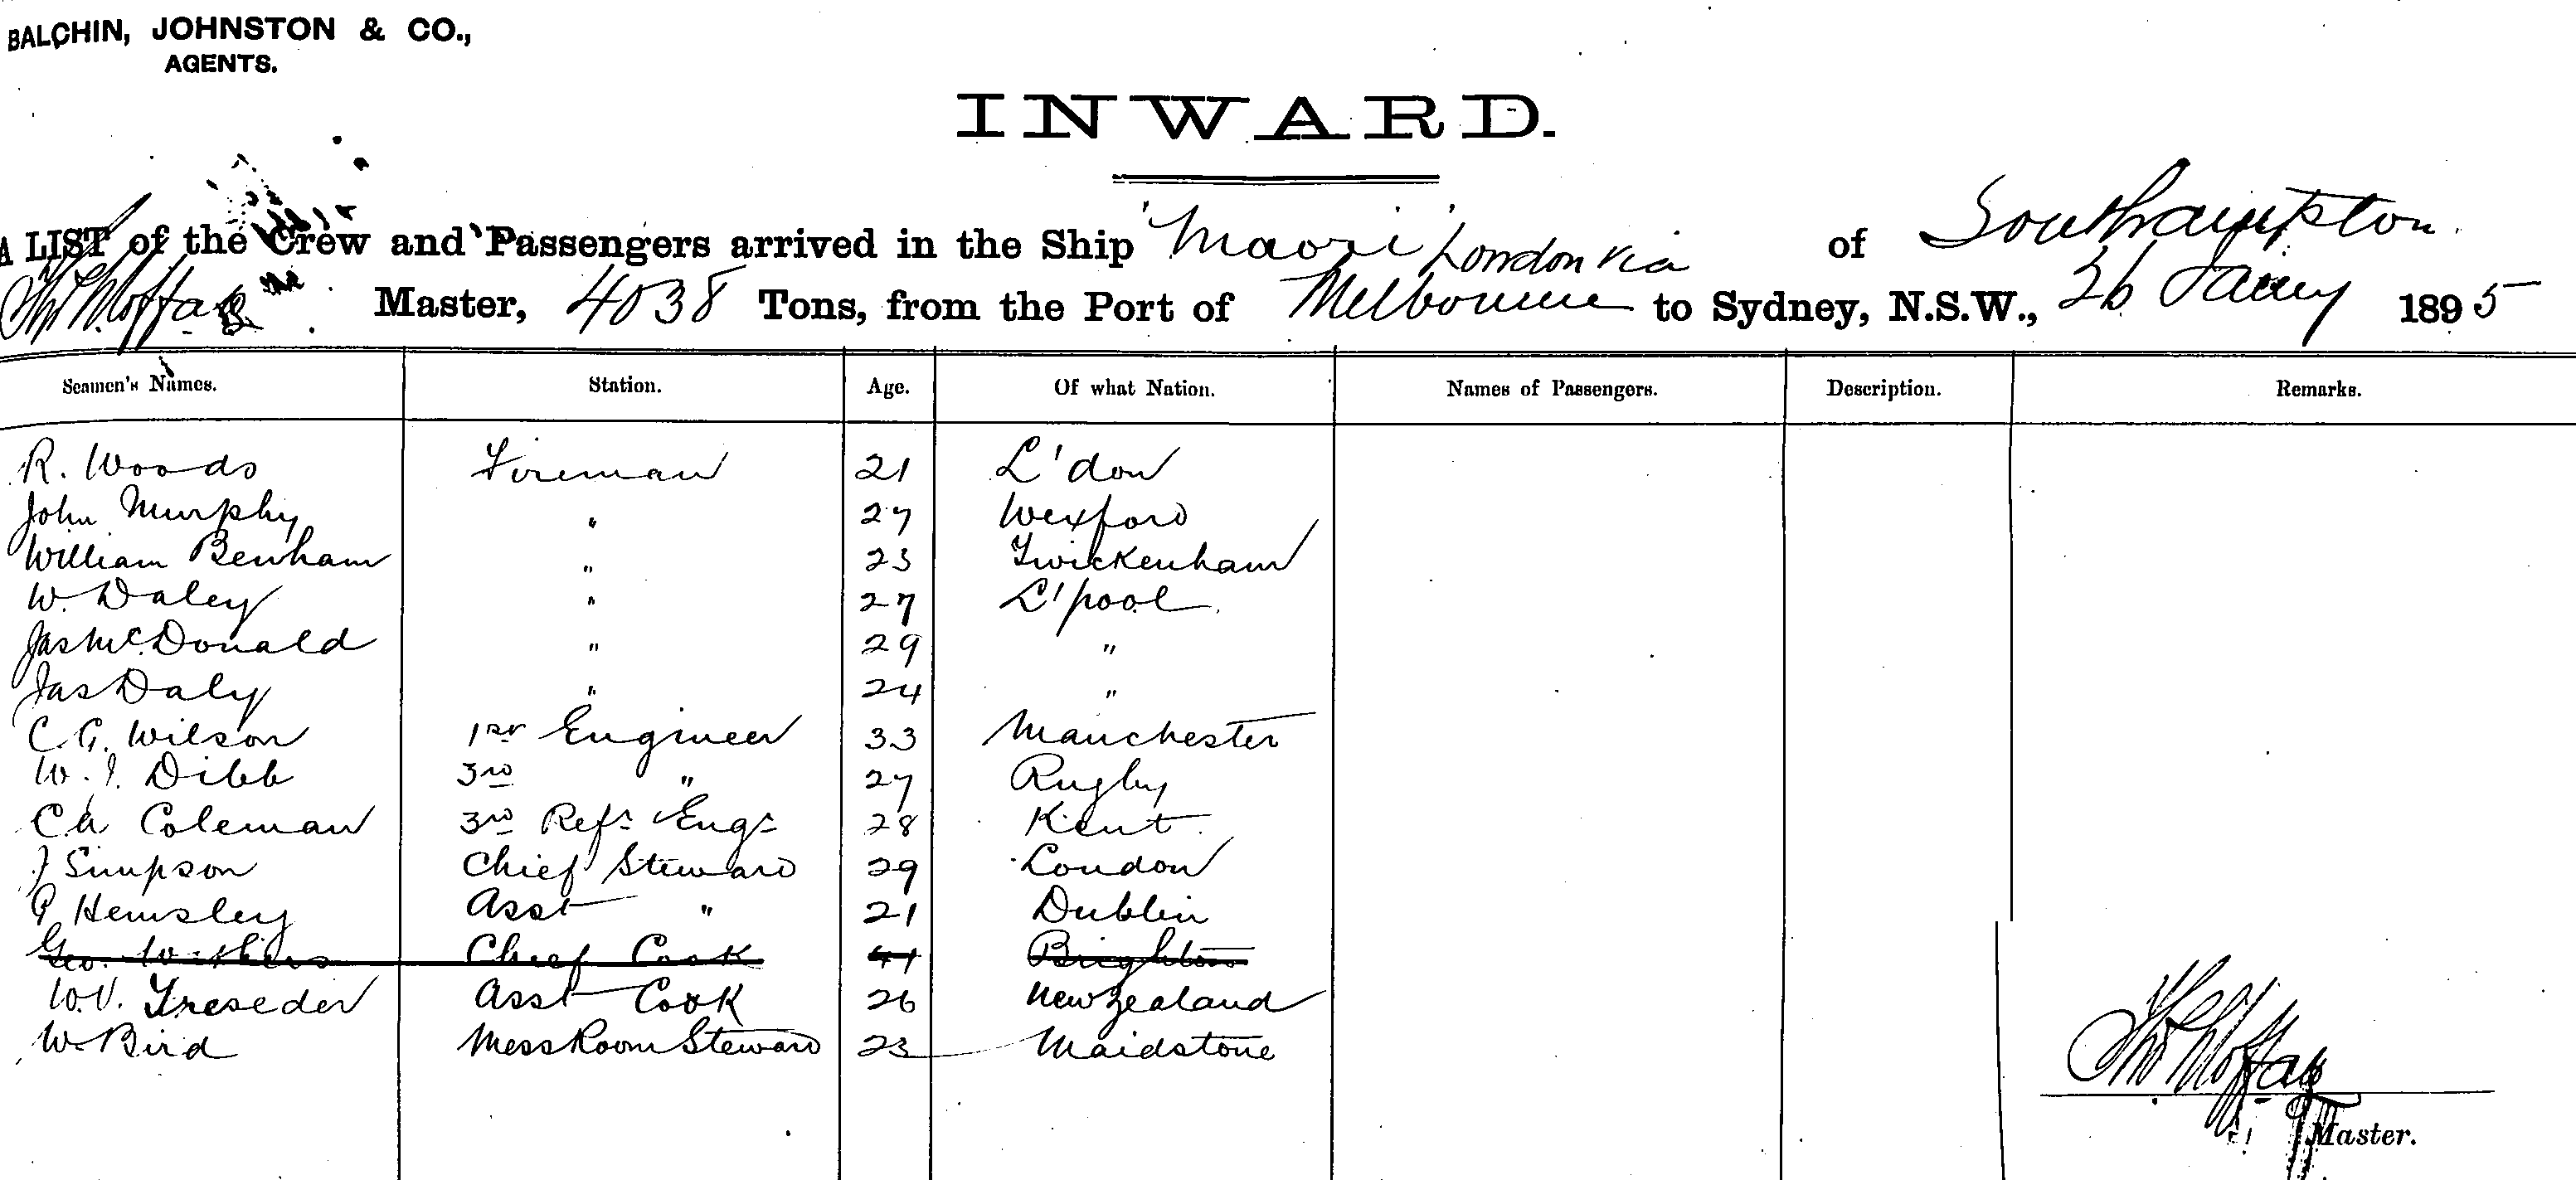 BALCHIN, JOHNSTON & CO.,
AGENTS.
INWARD.
A LIST of the Crew and Passengers arrived in the Ship 'Maori' of Southampton
Thos Moffat Master, 4038 Tons, from the Port of London via Melbourne to Sydney, N.S.W., 26 Jany 1895
Seamen's Names. Station. Age. Of what Nation. Names of Passengers. Description. Remarks.
R. Woods Fireman 21 L'don
John Murphy " 27 Wexford
William Benham " 23 Twickenham
W. Daley " 27 L'pool
Jas McDonald " 29 "
Jas Daly " 24 "
C.G. Wilson 1st Engineer 33 Manchester
W.J. Dibb 3rd " 27 Rugby
C.A Coleman 3rd Refr Engr 28 Kent
J Simpson Chief Steward 29 London
P Hemsley Asst " 21 Dublin
Geo. Withers Chief Cook 41 Brighton
W.V. Treseder Asst Cook 26 New Zealand
W. Bird Mess Room Steward 23 Maidstone
Thos Moffat
Master.